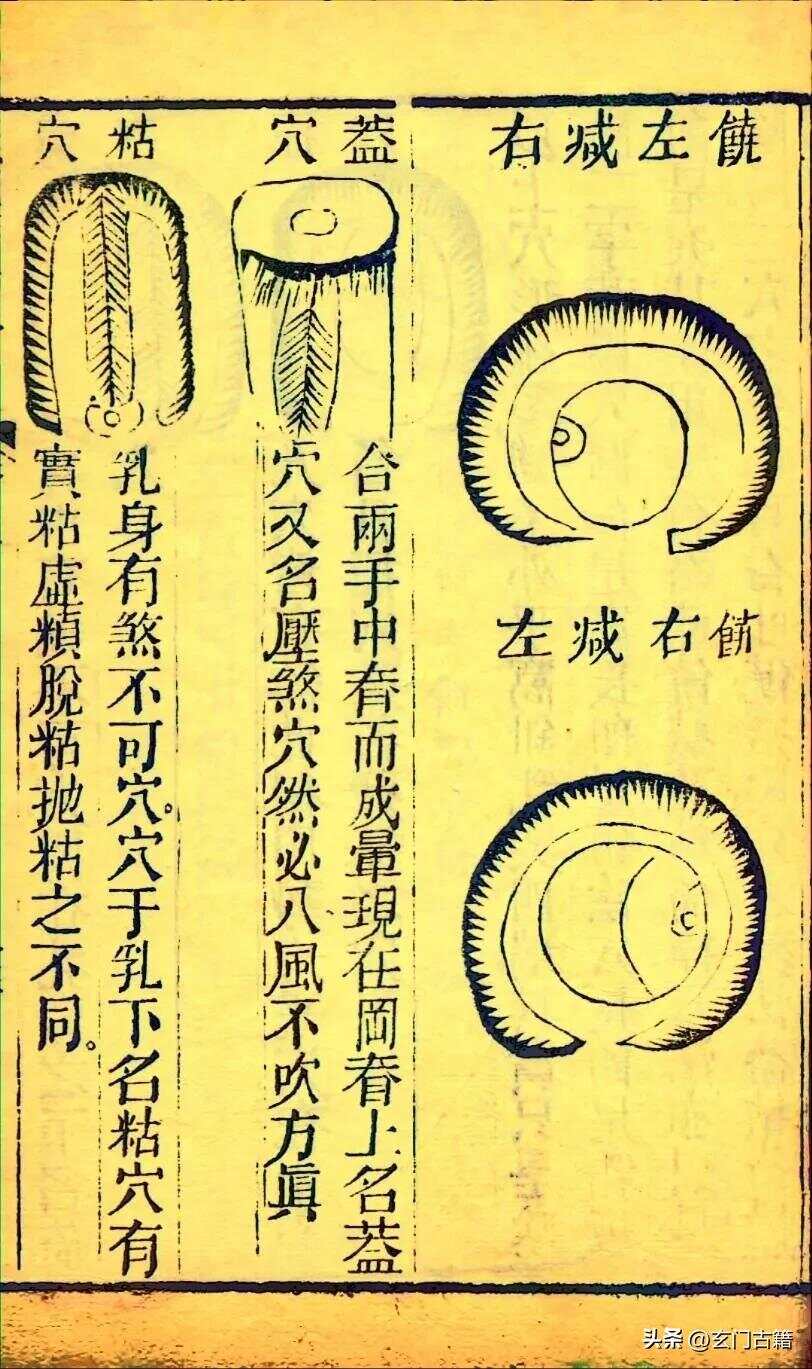 饒左減右
饒右減左
蓋穴
合兩手中脊而成暈現在岡脊上名蓋
穴又名壓煞穴然必八風不吹方眞
粘穴
乳身有煞不可穴。穴于乳下名粘穴有
實粘虛粘脫粘拋粘之不同。
头条 @玄门古籍